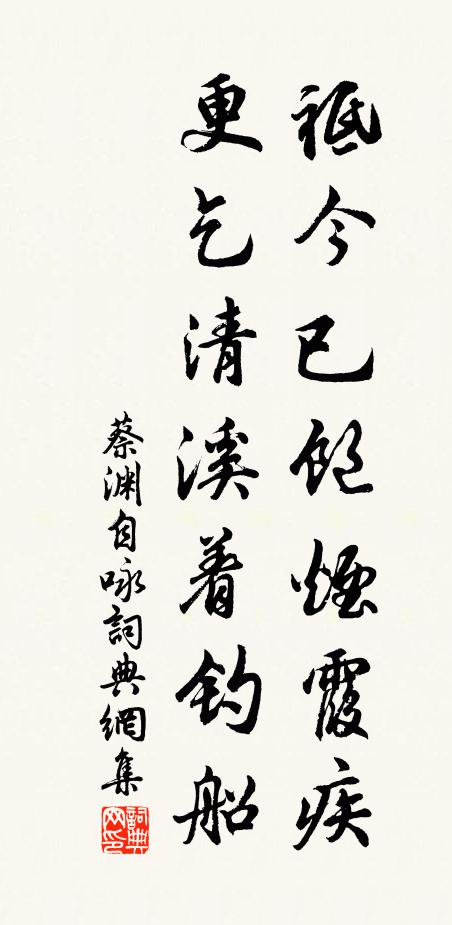 祗今已飽煙霞疾
更乞清溪着釣船
蔡渊自咏詞典網集
詞典
网印